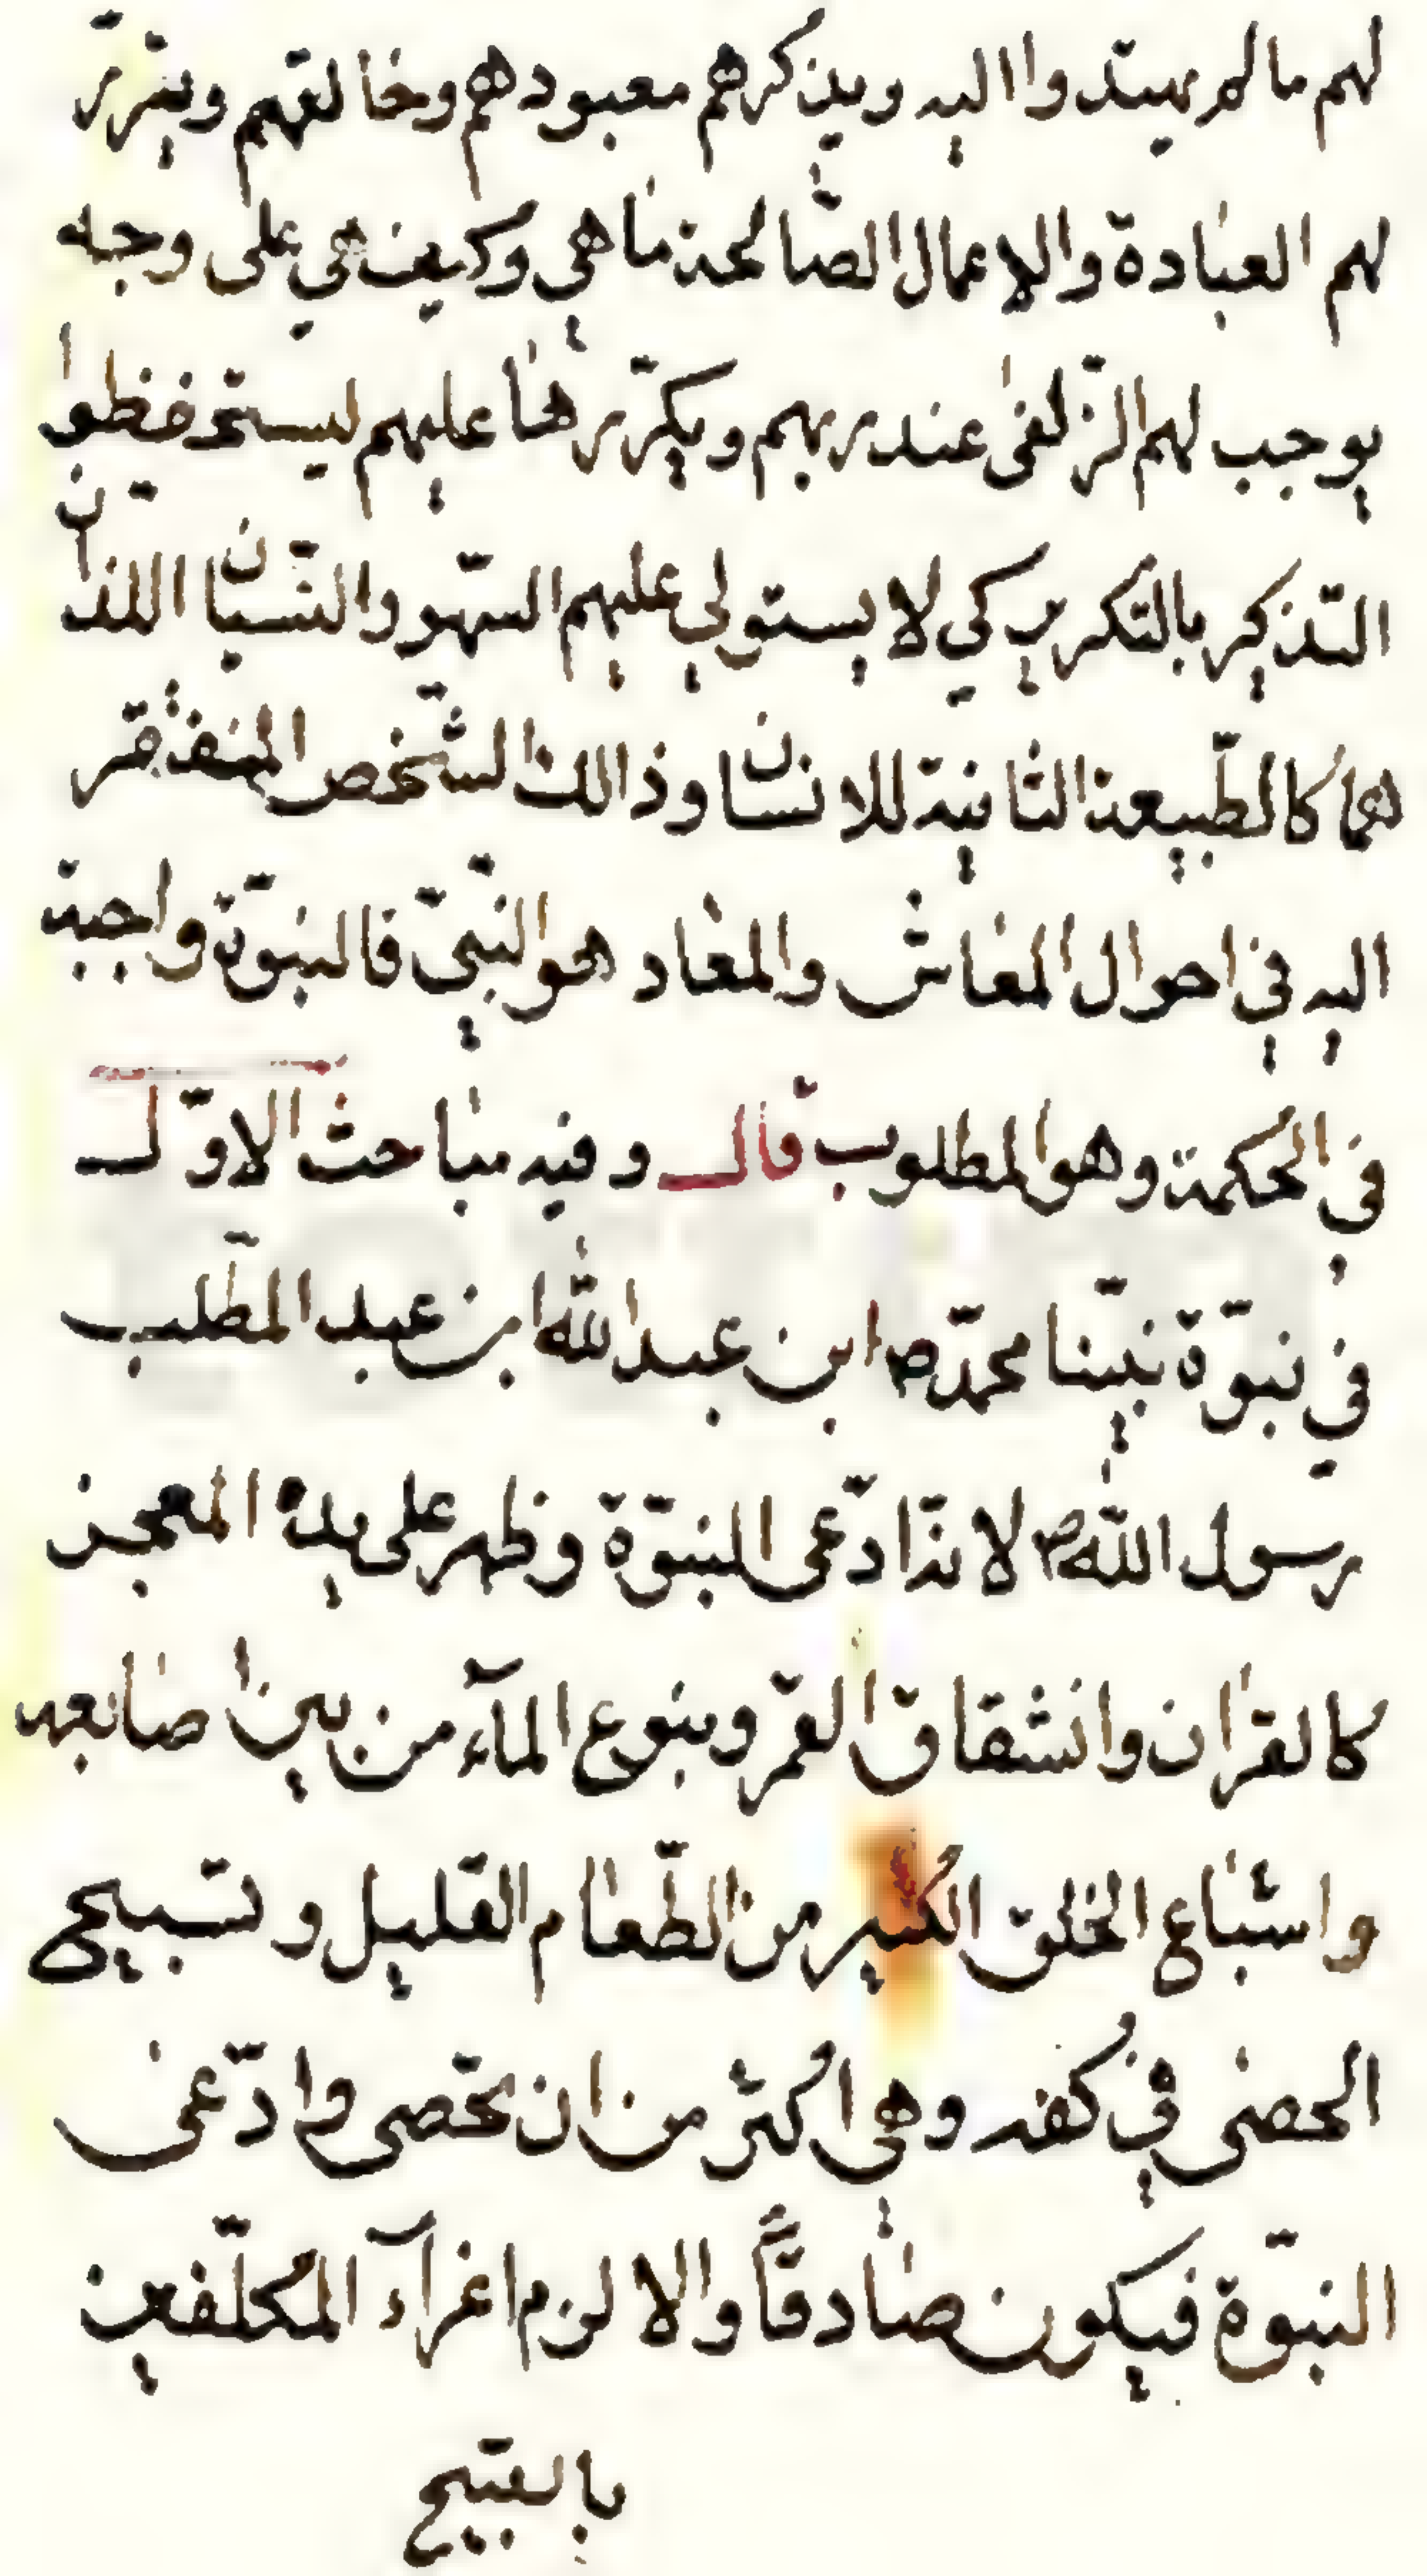 لهم ما لم يهتدوا اليه ويذكرهم معبودهم وخالقهم ويقرّر
لهم العبادة والاعمال الصّالحة ما هي وكيف هي على وجه
يوجب لهم الزّلفى عند ربهم ويكرّرها عليهم ليستحفظوا
التّذكير بالتكرير كي لا يستولي عليهم السّهو والنّسيان اللذان
هما كالطّبيعة الثانية للانسان وذالك الشّخص المفتقر
اليه في احوال المعاش والمعاد هو النّبيّ فالنبوّة واجبة
في الحكمة وهو المطلوب قال وفيه مباحث الاوّل
في نبوّة نبيّنا محمّد ص ابن عبد الله ابن عبد المطّلب
رسول الله ص لانّه ادّعى النبوّة وظهر على يده المعجز
كالقران وانشقاق القمر وينبوع المآء من بين اصابعه
واشباع الخلق الكثير من الطّعام القليل وتسبيح
الحصى في كفه وهي اكثر من ان تحصى وادّعى
النبوّة فيكون صادقاً والا لزم اغرآء المكلّفين
بالقبيح